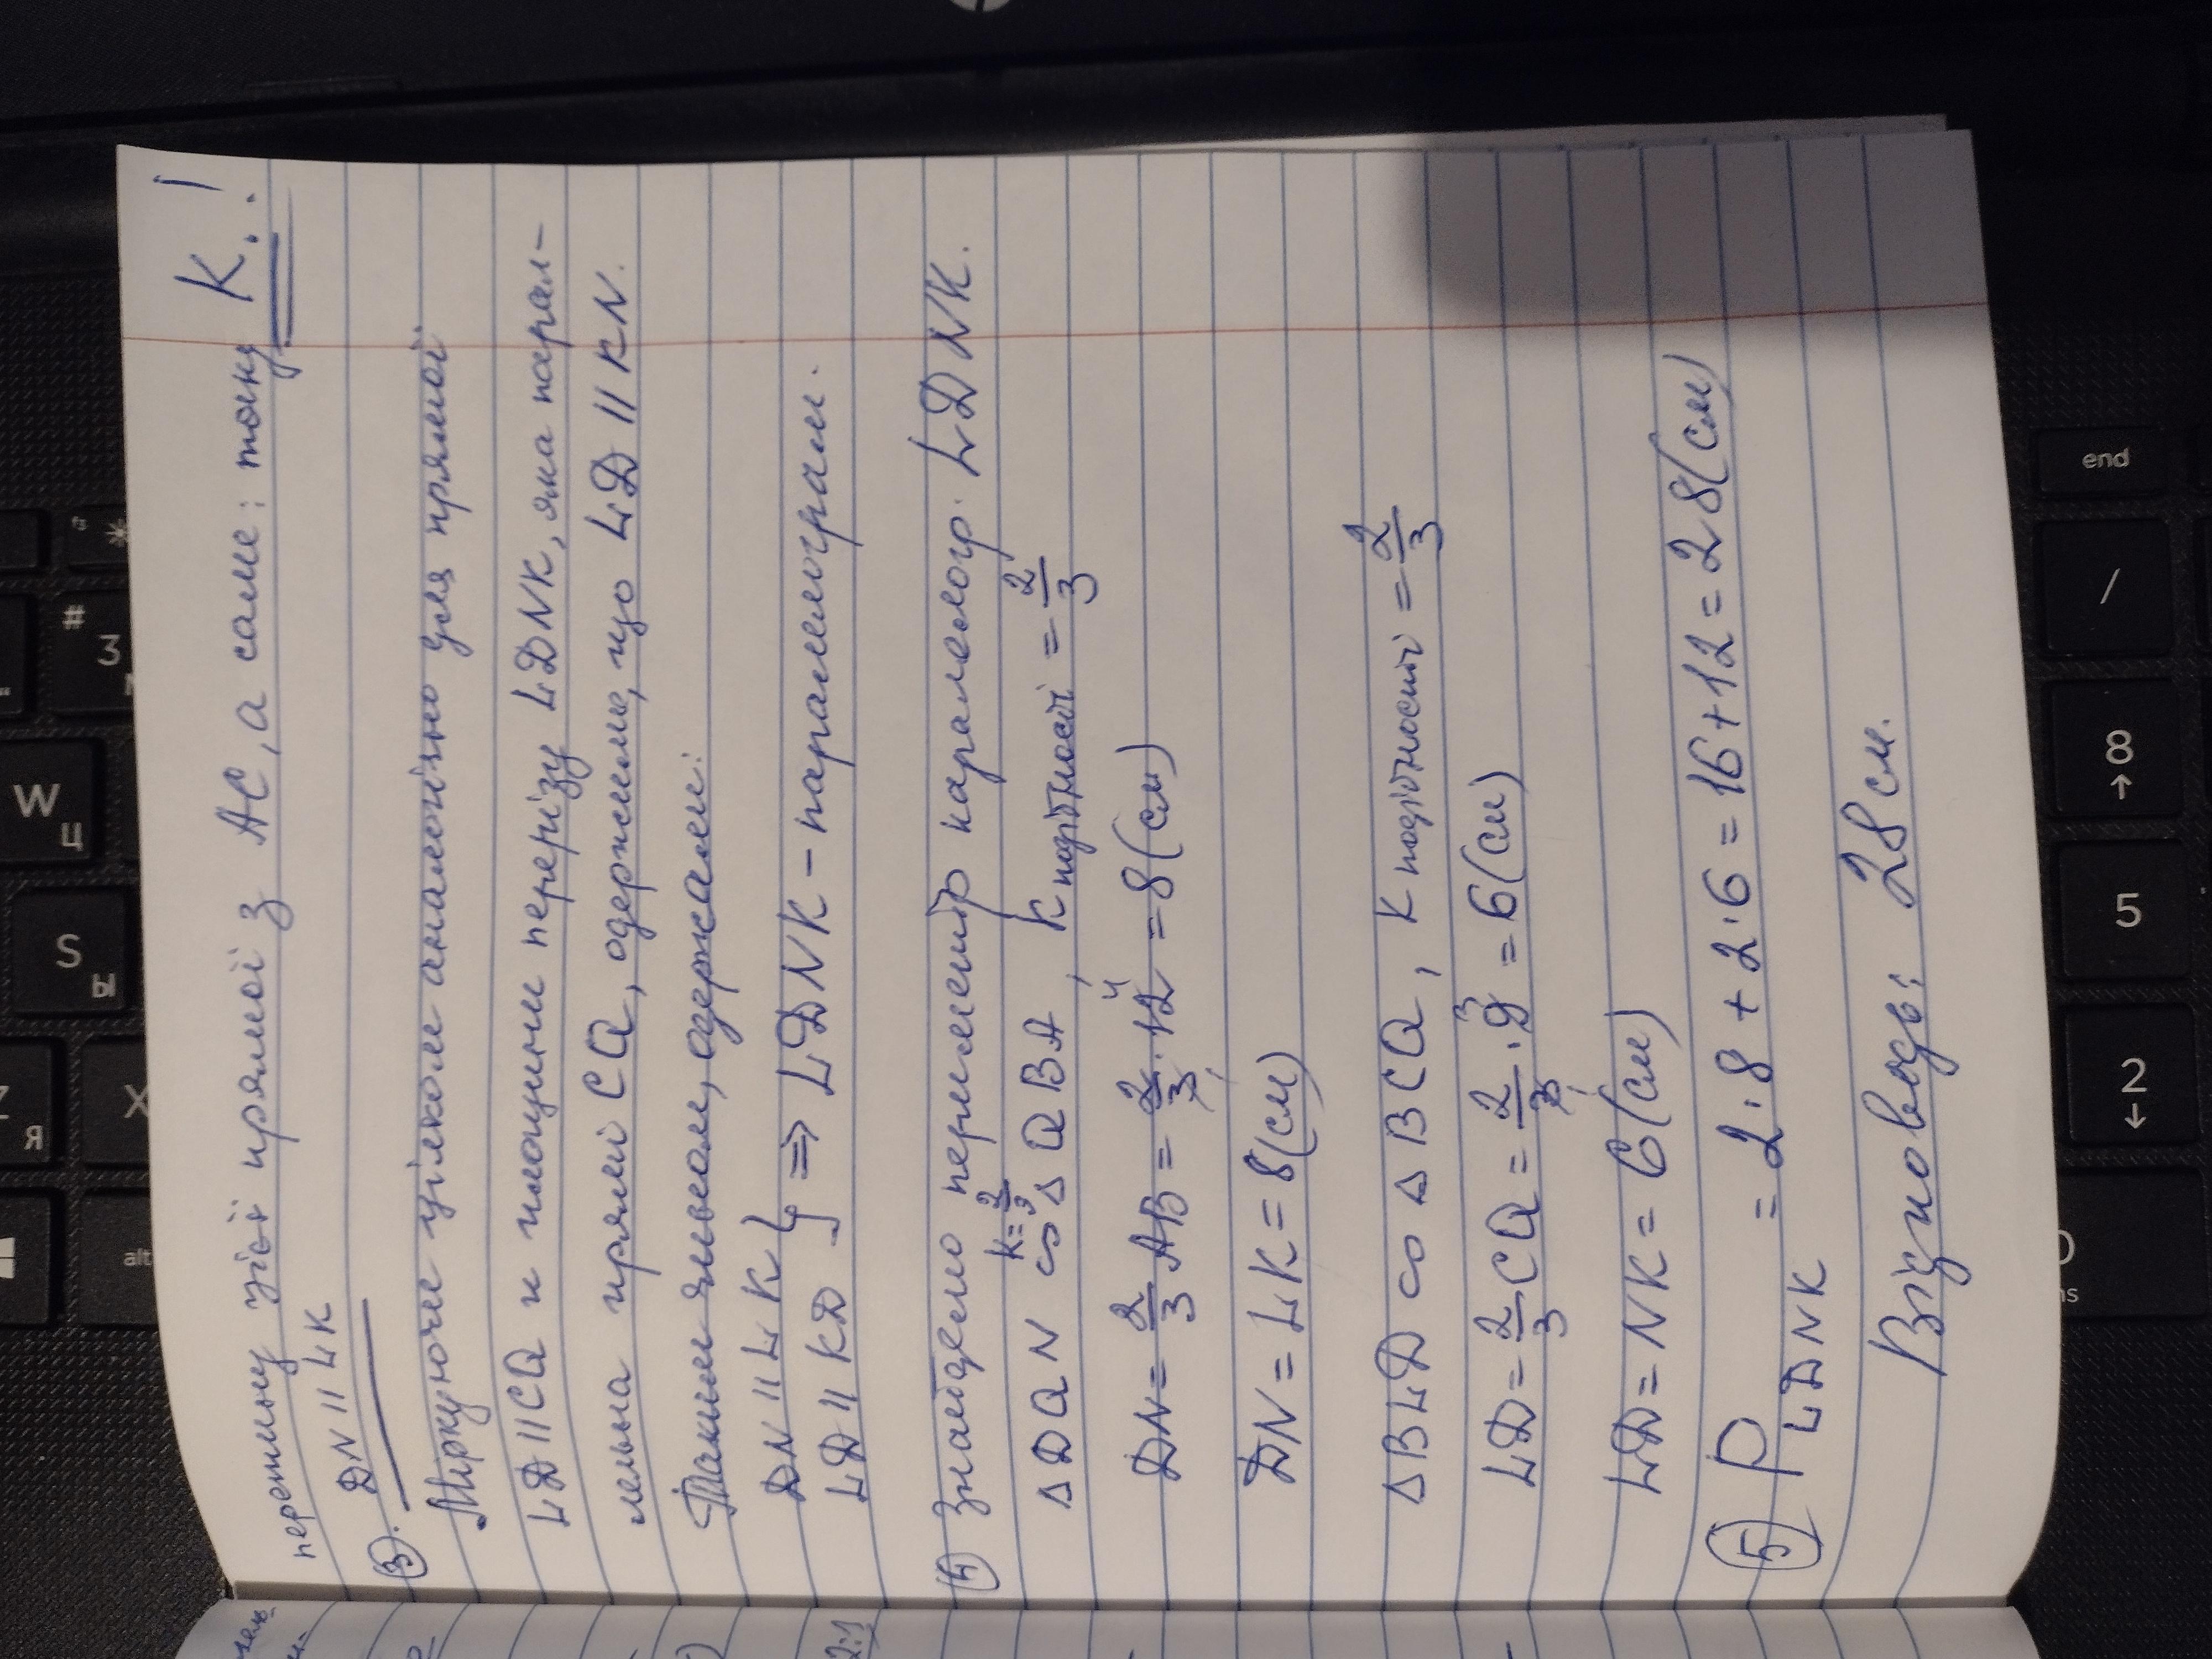 перетину цієї прямої з AC, а саме: точку K.!
DN || LK
③. Міркуючи цілком аналогічно для прямої
LD || CQ и площини перерізу LDNK, яка парал-
лельна прямій CQ, одержимо, що LD || KN.
Таким чином, одержали:
DN || LK
LD || KD } ⇒ LDNK - паралелограм.
④ Знайдемо периметр паралелогр. LDNK.
k = 2/3
△ DQN ∞ △ QBA, K подібності = 2/3
DN = 2/3 AB = 2/3 · 12 4 = 8 (см)
3 1
DN = LK = 8 (см)
△ BLD ∞ △ BCQ, K подібності = 2/3
LD = 2/3 CQ = 2/3 · 9 3 = 6 (см)
LD = NK = 6 (см)
⑤ P LDNK = 2·8 + 2·6 = 16+12 = 28 (см)
Відповідь: 28 см.
2:1
end
/
# 3
8 →
W Ц
S Ы
5
Я
X
2 ←
alt